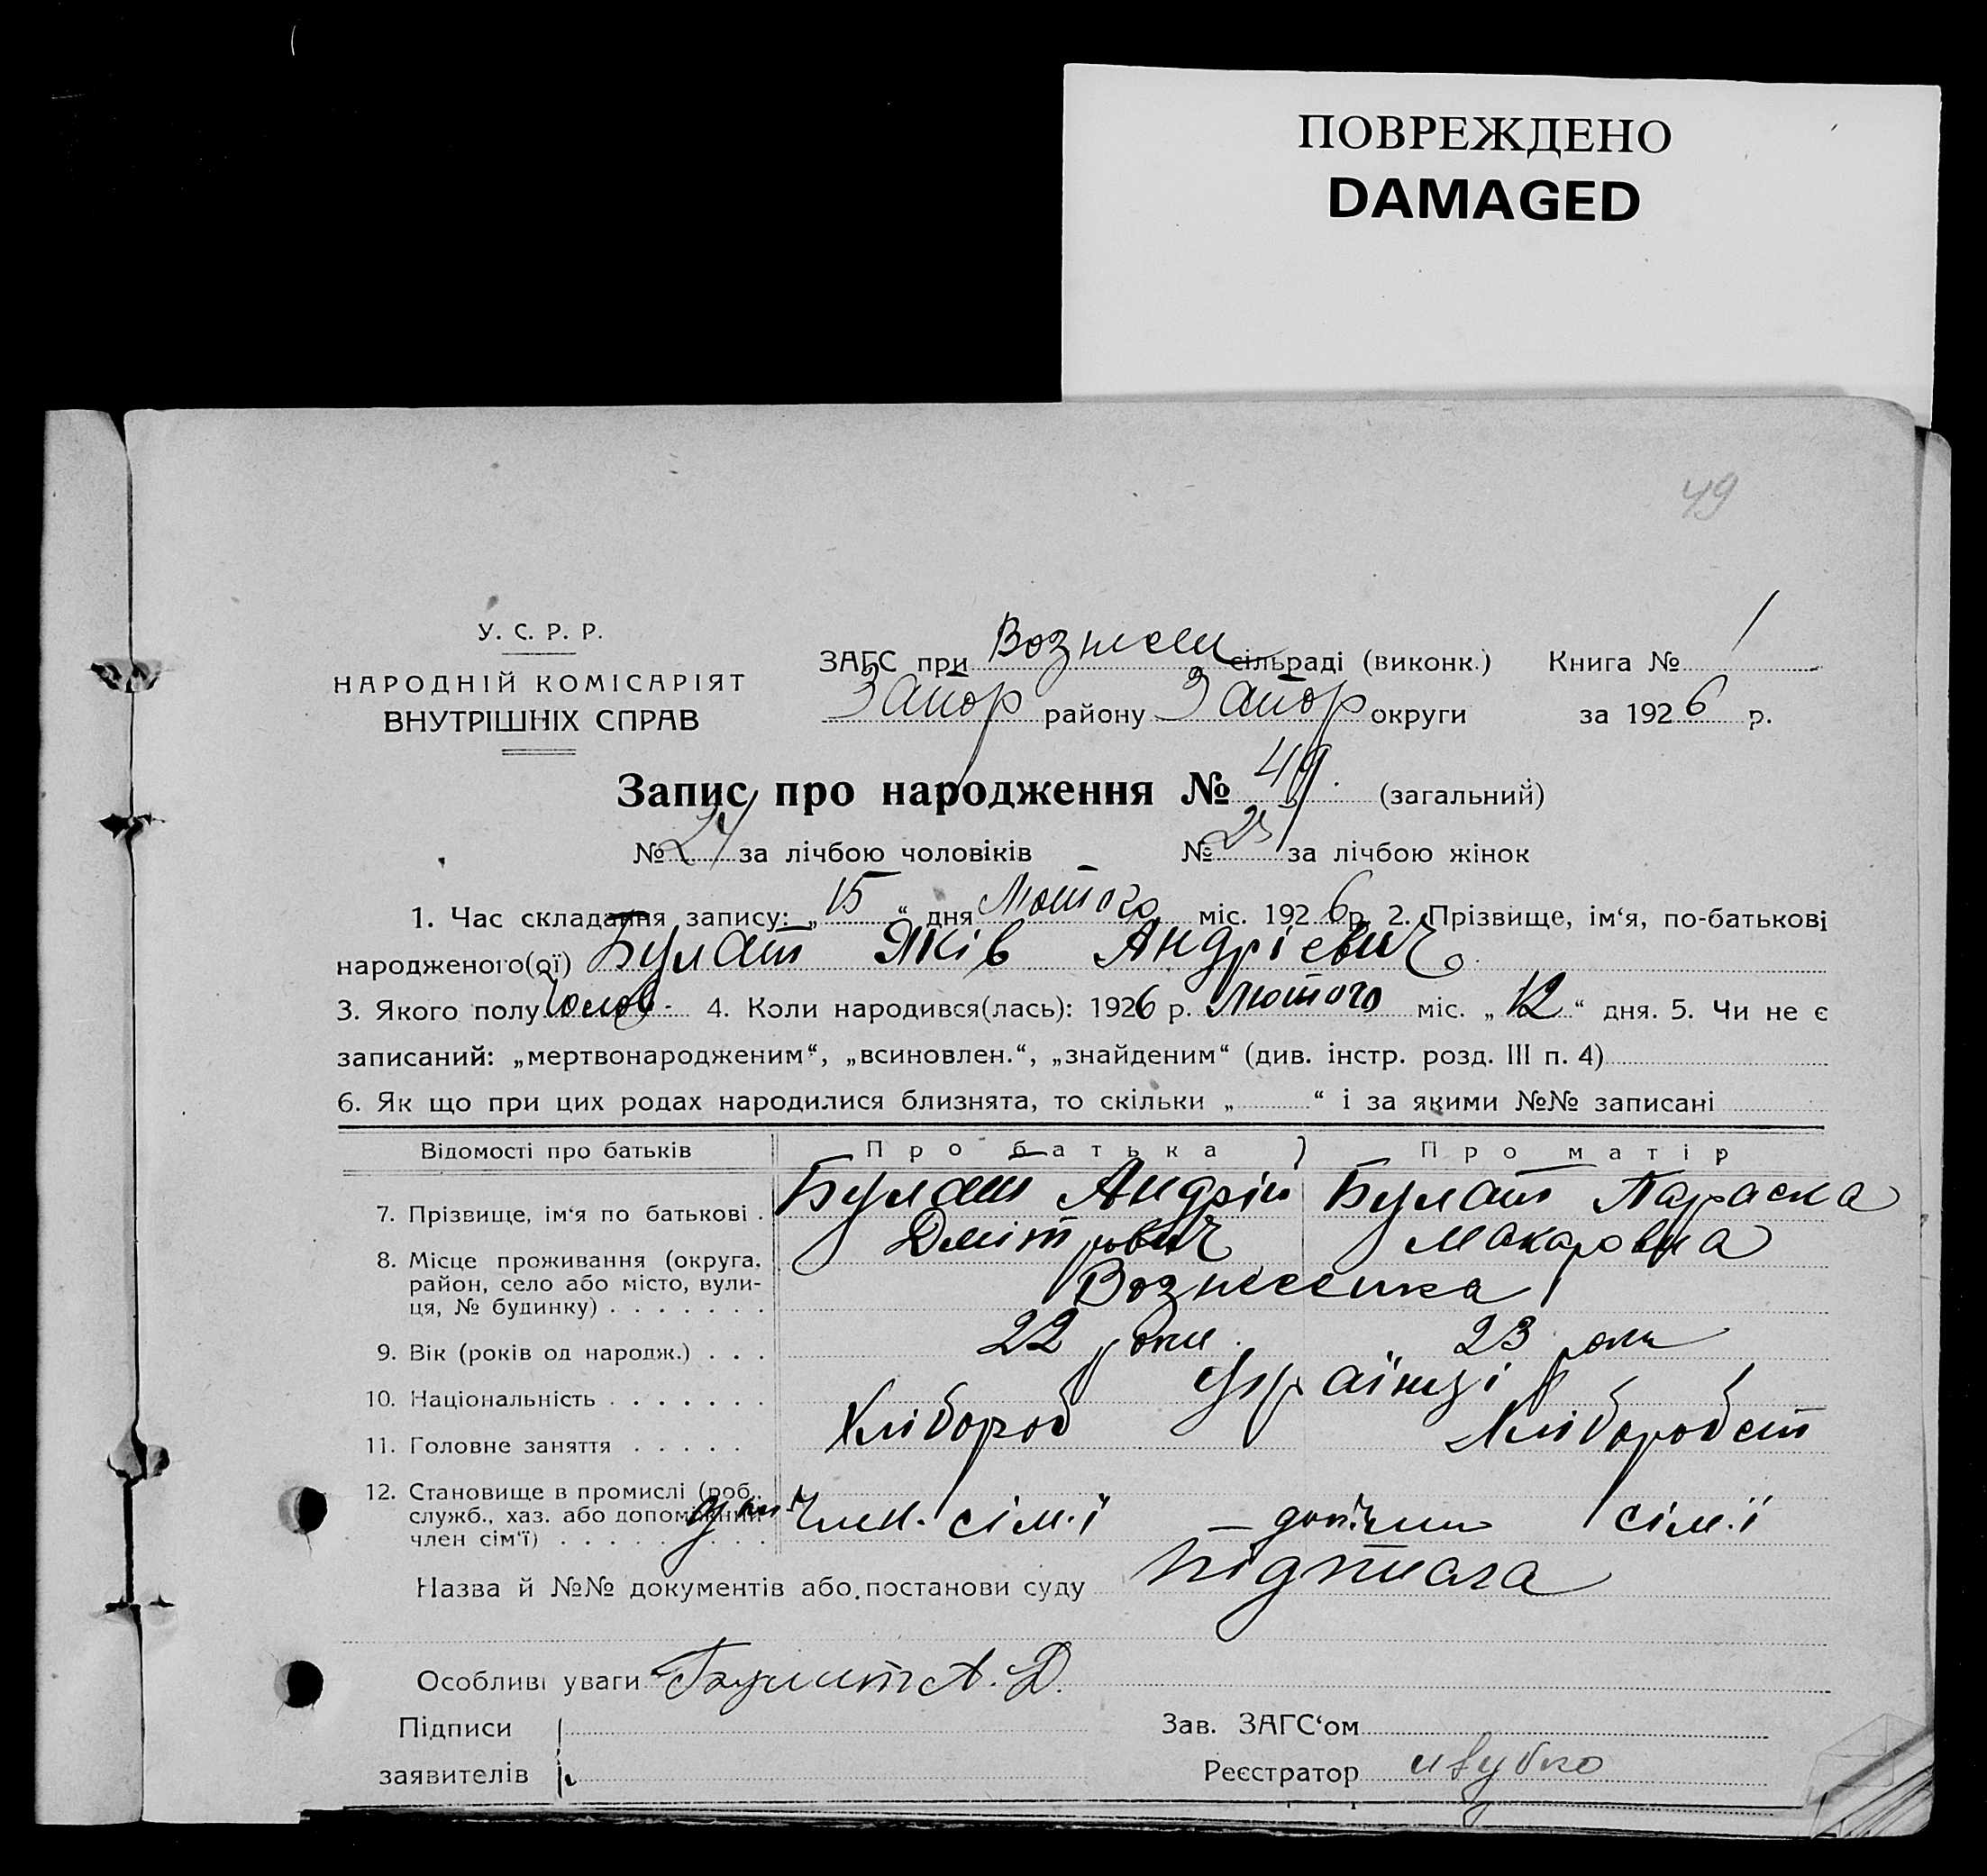 ПОВРЕЖДЕНО
DAMAGED
49
У. С. Р. Р.
НАРОДНІЙ КОМІСАРІЯТ
ВНУТРІШНІХ СПРАВ
ЗАГС при Вознесен сільраді (виконк.) Книга № 1
Запор району Запор округи за 1926 р.
Запис про народження № 49. (загальний)
№ за лічбою чоловіків № за лічбою жінок
1. Час складання запису: „15“ дня Лютого міс. 1926 р. 2. Прізвище, ім‘я, по-батькові
народженого(ої) Булат Яків Андрієвич
3. Якого полу Чолов- 4. Коли народився(лась): 1926 р. Лютого міс. „12“ дня. 5. Чи не є
записаний: „мертвонародженим“, „всиновлен.“, „знайденим“ (див. інстр. розд. III п. 4)
6. Як що при цих родах народилися близнята, то скільки „ “ і за якими №№ записані
Відомості про батьків Про батька Про матір
7. Прізвище, ім‘я по батькові . Булат Андрій Булат Параска
Дмітрович Макаровна
8. Місце проживання (округа, район, село або місто, вули-
ця, № будинку) . . . . . . . Вознесенка
9. Вік (років од народж.) . . . 22 роки 23 роки
10. Національність . . . . . . . Українці
11. Головне заняття . . . . . Хлібороб Хліборобст
12. Становище в промислі (роб.,
служб., хаз. або допоміжний
член сім‘ї) . . . . . . . . . член. сім.ї сім.ї
Назва й №№ документів або постанови суду підписа
Особливі уваги Булат А. Д.
Підписи Зав. ЗАГС‘ом
заявителів Реєстратор